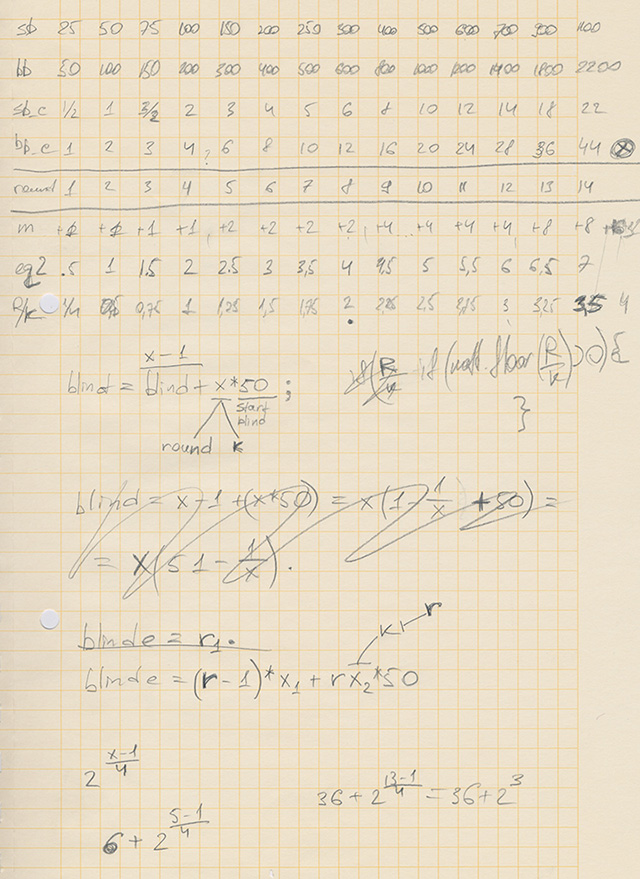 sb 25 50 75 100 150 200 250 300 400 500 600 700 900 1100
bb 50 100 150 200 300 400 500 600 800 1000 1200 1400 1800 2200
sb_c 1/2 1 3/2 2 3 4 5 6 8 10 12 14 18 22
bb_c 1 2 3 4 ? 6 8 10 12 16 20 24 28 36 44 ⊗
round 1 2 3 4 5 6 7 8 9 10 11 12 13 14
m +1 +1 +1 +1 +2 +2 +2 +2 +4 +4 +4 +4 +8 +8
eq2 .5 1 1.5 2 2.5 3 3,5 4 4,5 5 5,5 6 6,5 7
R/k 1/4 0,5 0,75 1 1,25 1,5 1,75 2 2,25 2.5 2,75 3 3,25 3,5 4
x-1
blind = blind + x*50 ; if (math.floor(R/k)>0){
start
blind
}
round k
blind = x-1 + (x*50) = x(1 - 1/x + 50) =
= x(51 - 1/x).
k r
blinde = r1.
blinde = (r-1)*x1 + rx2*50
2^((x-1)/4)
36 + 2^((13-1)/4) = 36 + 2^3
6 + 2^((5-1)/4)